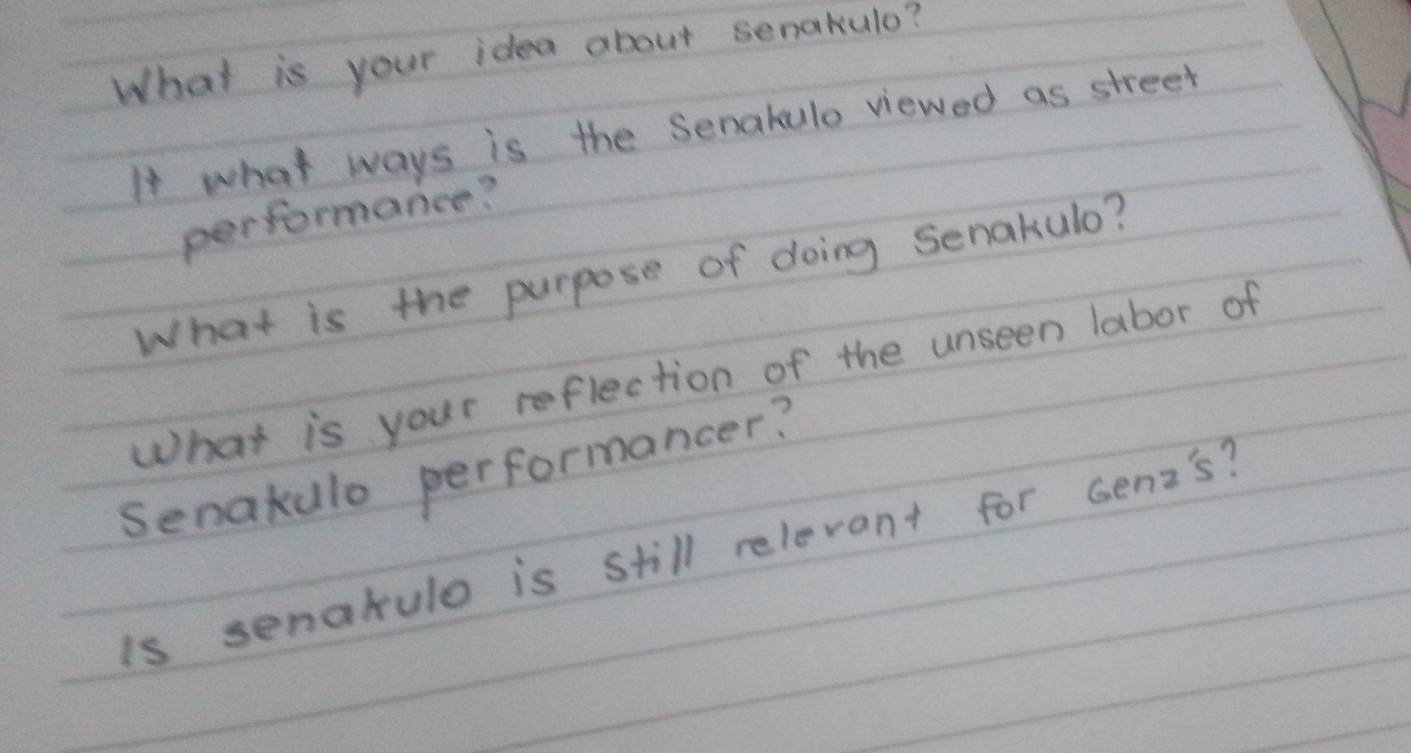 What is your idea about senakulo?
It what ways is the Senakulo viewed as street
performance?
What is the purpose of doing Senakulo?
What is your reflection of the unseen labor of
Senakulo performancer?
Is senakulo is still relevant for Genz's?